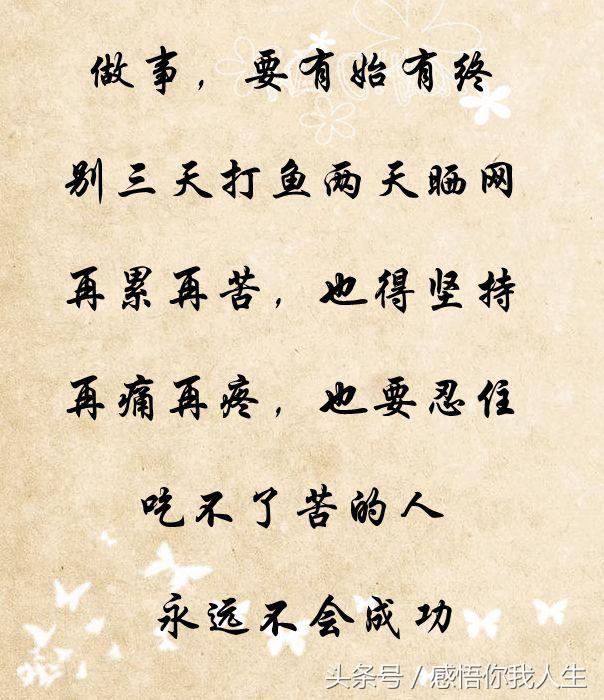 做事，要有始有终
别三天打鱼两天晒网
再累再苦，也得坚持
再痛再疼，也要忍住
吃不了苦的人
永远不会成功
头条号 / 感悟你我人生